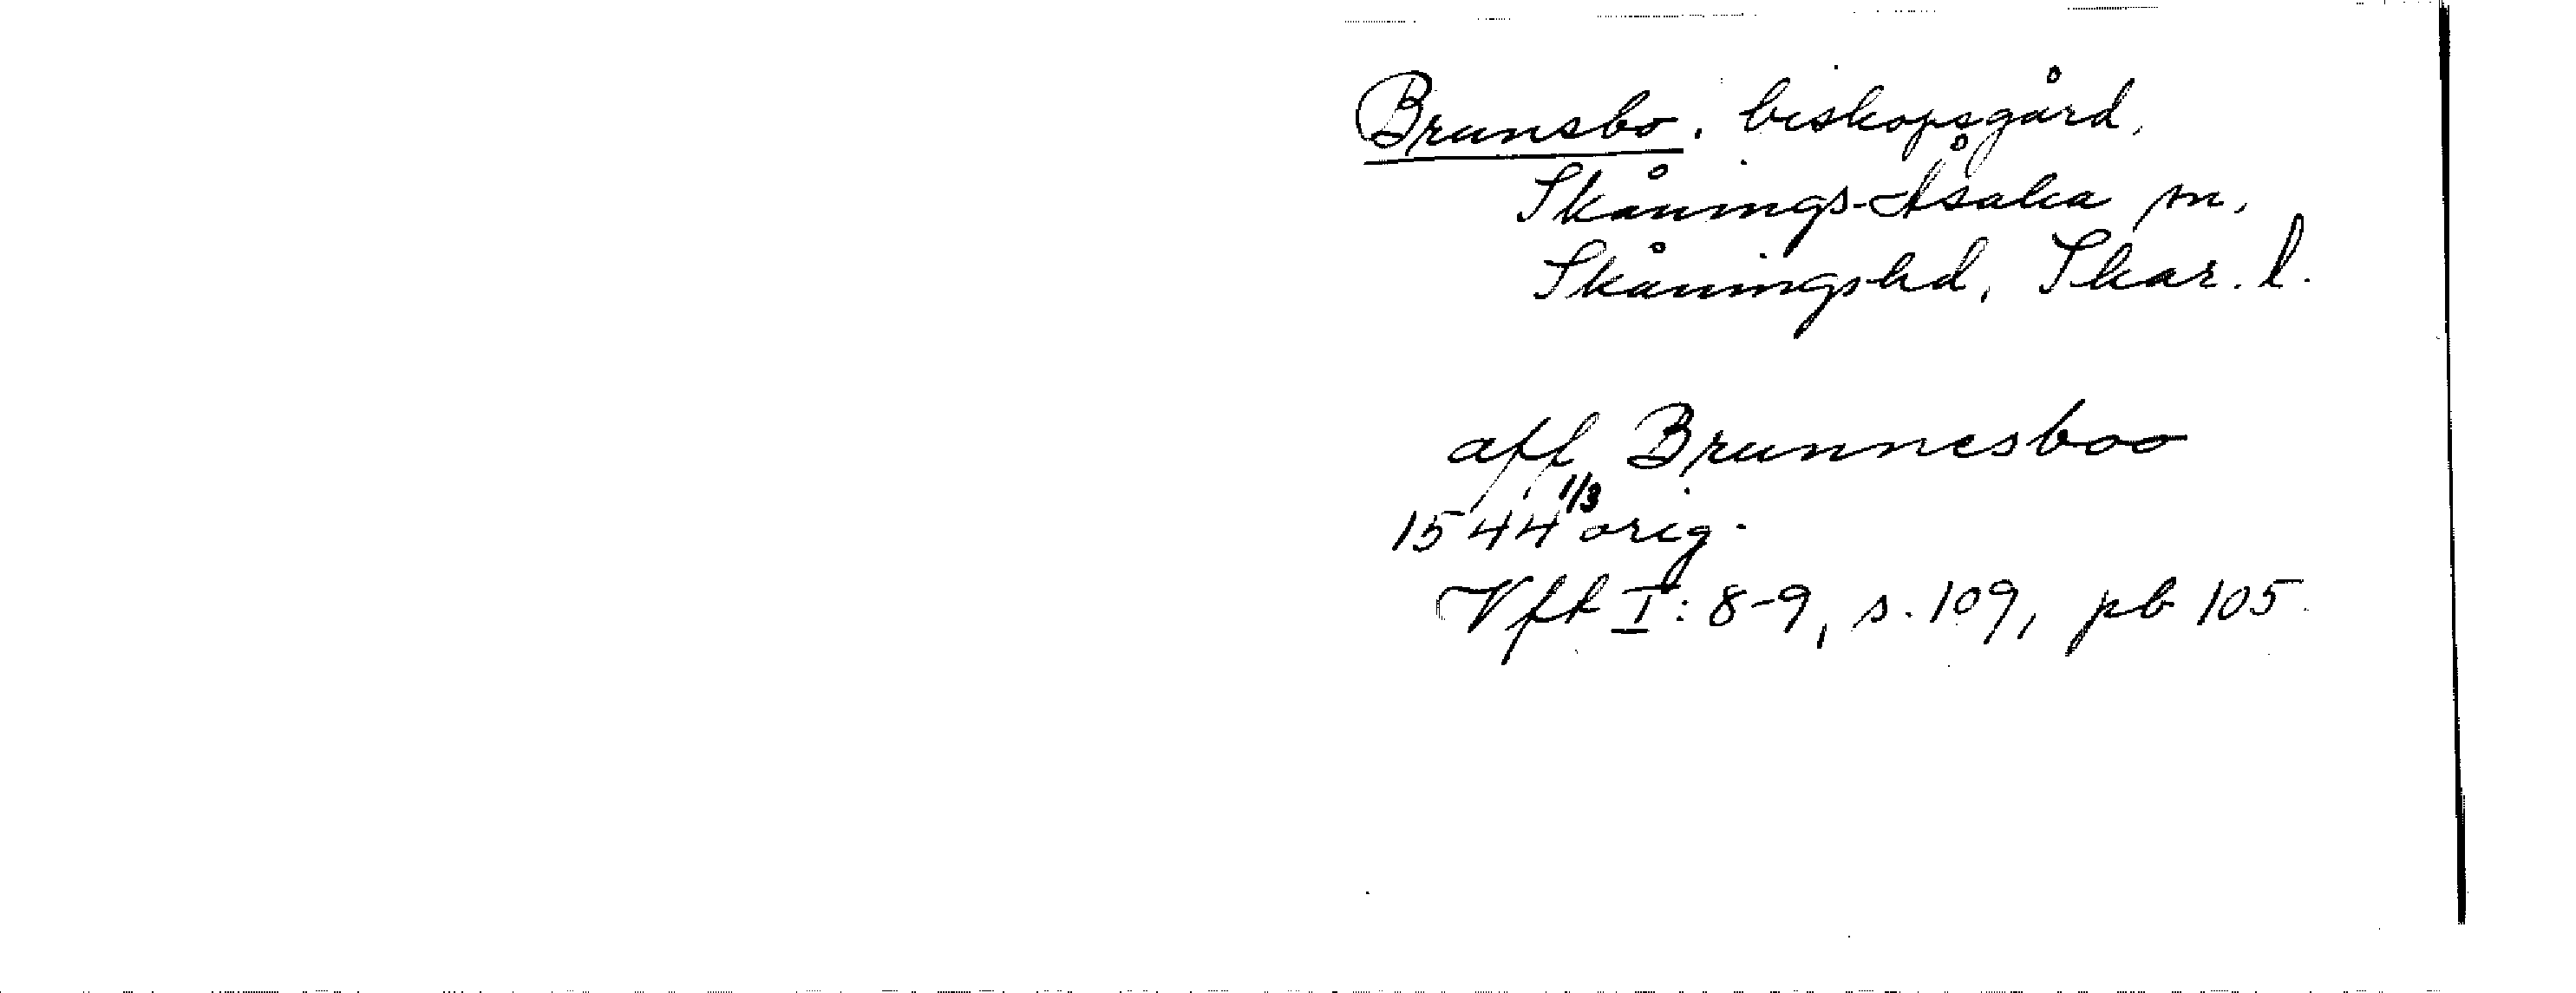 Brunsbo, biskopsgård,
Skånings-Åsaka sn,
Skåningshd, Skar. l.
aff Brunnesboo
1544 1/3 orig.
Vft I: 8-9, s. 109, pb 105.